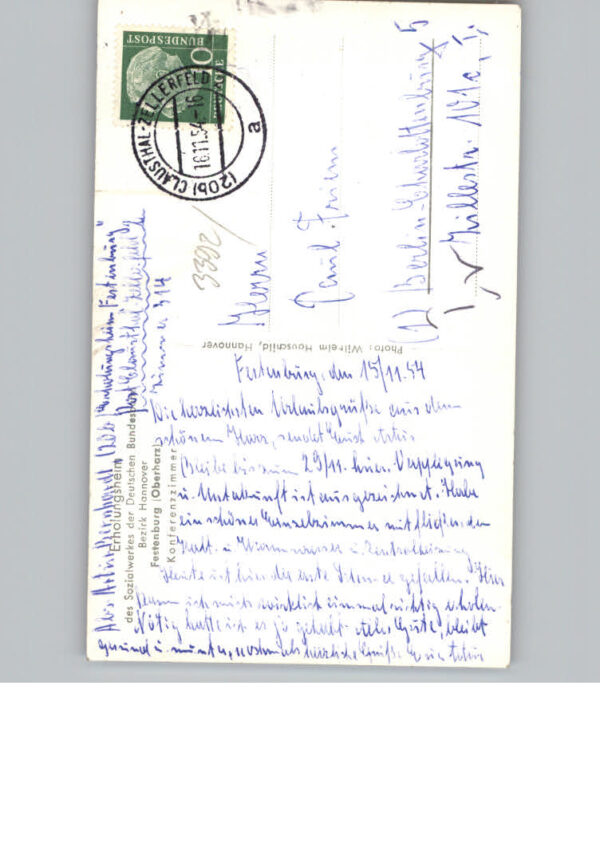 Erholungsheim
des Sozialwerkes der Deutschen Bundespost
Bezirk Hannover
Festenburg (Oberharz)
Konferenzzimmer
Photo: Wilhelm Hauschild, Hannover
BUNDESPOST
(20b) CLAUSTHAL-ZELLERFELD
16.11.54-16
a
3392/
Abs. Artur (20b) Erholungsheim Festenburg
Post Clausthal-Zellerfeld
Zimmer 314
Herrn
Paul
(1) Berlin-Charlottenburg 5
101a, I,
Festenburg, den 15/11.54
Die herzlichsten Urlaubsgrüße aus dem
schönen Harz, sendet Euch Artur
Bleibe bis zum 29/11. hier. Verpflegung
u. Unterkunft ist ausgezeichnet. Habe
ein schönes Einzelzimmer mit fließenden
Kalt- u. Warmwasser u. Zentralheizung
Heute ist hier der erste Schnee gefallen. Hier
kann ich mich wirklich einmal richtig erholen.
Nötig hatte ich es ja gehabt. Alles Gute, bleibt
gesund u. munter, nochmals herzliche Grüße Euer Artur